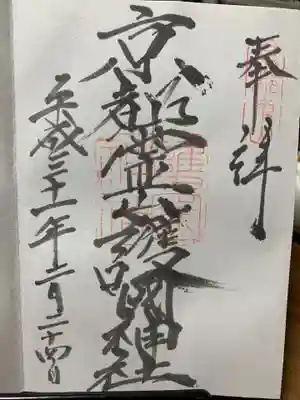 奉拝
京都霊山護國神社
平成三十一年二月二十四日